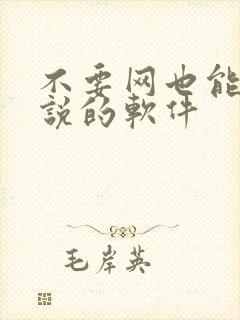 不要网也能
説的軟件
毛岸英